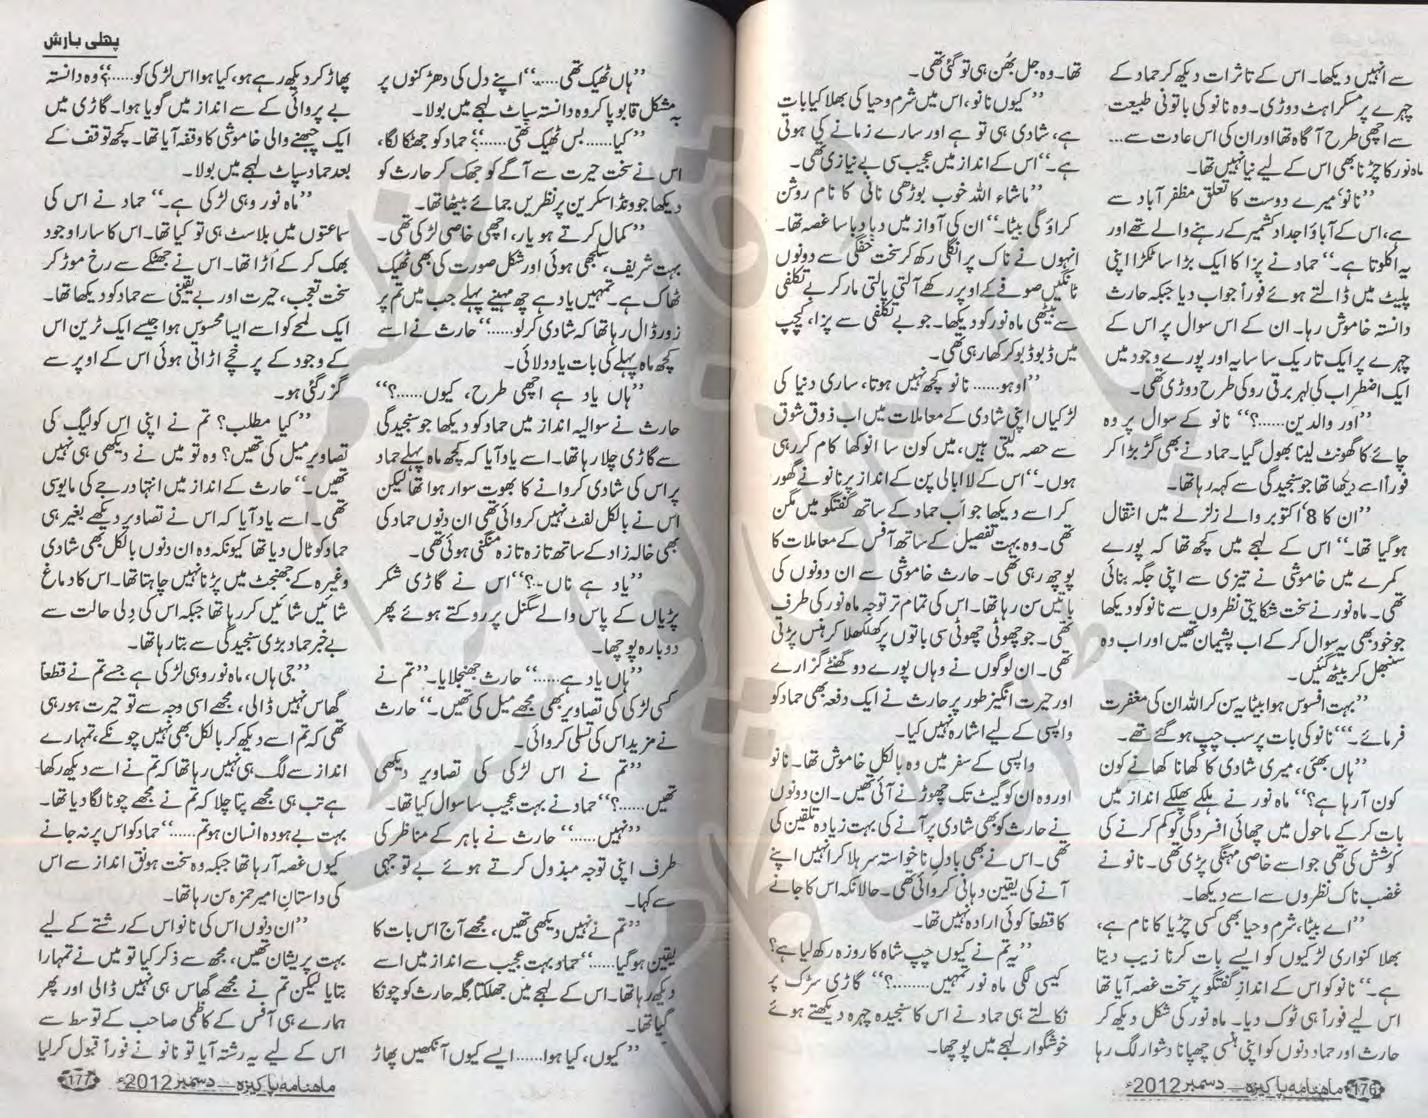 سے انہیں دیکھا۔ اس کے تاثرات دیکھ کر حماد کے
چہرے پر مسکراہٹ دوڑی۔ وہ نانو کی باتونی طبیعت
سے اچھی طرح آگاہ تھا اور ان کی اس عادت سے...
ماہ نور کا چڑنا بھی اس کے لیے نیا نہیں تھا۔
’’نانو‘ میرے دوست کا تعلق مظفر آباد سے
ہے، اس کے آباؤ اجداد کشمیر کے رہنے والے تھے اور
یہ اکلوتا ہے۔‘‘ حماد نے پزا کا ایک بڑا سا ٹکڑا اپنی
پلیٹ میں ڈالتے ہوئے فوراً جواب دیا جبکہ حارث
دانستہ خاموش رہا۔ ان کے اس سوال پر اس کے
چہرے پر ایک تاریک سا سایہ اور پورے وجود میں
ایک اضطراب کی لہر برقی رو کی طرح دوڑی تھی۔
’’اور والدین......؟‘‘ نانو کے سوال پر وہ
چائے کا گھونٹ لینا بھول گیا۔ حماد نے بھی گڑبڑا کر
فوراً اسے دیکھا تھا جو سنجیدگی سے کہہ رہا تھا۔
’’ان کا 8 اکتوبر والے زلزلے میں انتقال
ہو گیا تھا۔‘‘ اس کے لہجے میں کچھ تھا کہ پورے
کمرے میں خاموشی نے تیزی سے اپنی جگہ بنائی
تھی۔ ماہ نور نے سخت شکایتی نظروں سے نانو کو دیکھا
جو خود بھی یہ سوال کر کے اب پشیمان تھیں اور اب وہ
سنبھل کر بیٹھ گئیں۔
’’بہت افسوس ہوا بیٹا یہ سن کر اللہ ان کی مغفرت
فرمائے۔‘‘ نانو کی بات پر سب چپ ہو گئے تھے۔
’’ہاں بھئی، میری شادی کا کھانا کھانے کون
کون آ رہا ہے؟‘‘ ماہ نور نے ہلکے پھلکے انداز میں
بات کر کے ماحول میں چھائی افسردگی کو کم کرنے کی
کوشش کی تھی جو اسے خاصی مہنگی پڑی تھی۔ نانو نے
غضب ناک نظروں سے اسے دیکھا۔
’’اے بیٹا، شرم و حیا بھی کسی چڑیا کا نام ہے،
بھلا کنواری لڑکیوں کو ایسے بات کرنا زیب دیتا
ہے۔‘‘ نانو کو اس کے انداز گفتگو پر سخت غصہ آیا تھا
اس لیے فوراً ہی ٹوک دیا۔ ماہ نور کی شکل دیکھ کر
حارث اور حماد دونوں کو اپنی ہنسی چھپانا دشوار لگ رہا
تھا۔ وہ جل بھن ہی تو گئی تھی۔
’’کیوں نانو، اس میں شرم و حیا کی بھلا کیا بات
ہے، شادی ہی تو ہے اور سارے زمانے کی ہوتی
ہے۔‘‘ اس کے انداز میں عجیب سی بے نیازی تھی۔
’’ماشاء اللہ خوب بوڑھی نانی کا نام روشن
کراؤ گی بیٹا۔‘‘ ان کی آواز میں دبا دبا سا غصہ تھا۔
انہوں نے ناک پر انگلی رکھ کر سخت خفگی سے دونوں
ٹانگیں صوفے کے اوپر رکھے آلتی پالتی مار کر بے تکلفی
سے بیٹھی ماہ نور کو دیکھا۔ جو بے تکلفی سے پزا، کیچپ
میں ڈبو ڈبو کر کھا رہی تھی۔
’’اوہو...... نانو کچھ نہیں ہوتا، ساری دنیا کی
لڑکیاں اپنی شادی کے معاملات میں اب ذوق شوق
سے حصہ لیتی ہیں، میں کون سا انوکھا کام کر رہی
ہوں۔‘‘ اس کے لاابالی پن کے انداز پر نانو نے گھور
کر اسے دیکھا جو اب حماد کے ساتھ گفتگو میں مگن
تھی۔ وہ بہت تفصیل کے ساتھ آفس کے معاملات کا
پوچھ رہی تھی۔ حارث خاموشی سے ان دونوں کی
باتیں سن رہا تھا۔ اس کی تمام تر توجہ ماہ نور کی طرف
تھی۔ جو چھوٹی چھوٹی سی باتوں پر کھلکھلا کر ہنس پڑتی
تھی۔ ان لوگوں نے وہاں پورے دو گھنٹے گزارے
اور حیرت انگیز طور پر حارث نے ایک دفعہ بھی حماد کو
واپسی کے لیے اشارہ نہیں کیا۔
واپسی کے سفر میں وہ بالکل خاموش تھا۔ نانو
اور وہ ان کو گیٹ تک چھوڑنے آئی تھیں۔ ان دونوں
نے حارث کو بھی شادی پر آنے کی بہت زیادہ تلقین کی
تھی۔ اس نے بھی بادل ناخواستہ سر ہلا کر انہیں اپنے
آنے کی یقین دہانی کروائی تھی۔ حالانکہ اس کا جانے
کا قطعاً کوئی ارادہ نہیں تھا۔
’’یہ تم نے کیوں چپ شاہ کا روزہ رکھ لیا ہے؟
کیسی لگی ماہ نور تمہیں......؟‘‘ گاڑی سڑک پر
نکالتے ہی حماد نے اس کا سنجیدہ چہرہ دیکھتے ہوئے
خوشگوار لہجے میں پوچھا۔
ماہنامہ پاکیزہ — دسمبر 2012ء
176
پہلی بارش
’’ہاں ٹھیک تھی......‘‘ اپنے دل کی دھڑکنوں پر
بہ مشکل قابو پا کر وہ دانستہ سپاٹ لہجے میں بولا۔
’’کیا...... بس ٹھیک تھی......؟‘‘ حماد کو جھٹکا لگا،
اس نے سخت حیرت سے آگے کو جھک کر حارث کو
دیکھا جو ونڈ اسکرین پر نظریں جمائے بیٹھا تھا۔
’’کمال کرتے ہو یار، اچھی خاصی لڑکی تھی۔
بہت شریف، سلجھی ہوئی اور شکل صورت کی بھی ٹھیک
ٹھاک ہے۔ تمہیں یاد ہے چھ مہینے پہلے جب میں تم پر
زور ڈال رہا تھا کہ شادی کر لو......‘‘ حارث نے اسے
کچھ ماہ پہلے کی بات یاد دلائی۔
’’ہاں یاد ہے اچھی طرح، کیوں......؟‘‘
حارث نے سوالیہ انداز میں حماد کو دیکھا جو سنجیدگی
سے گاڑی چلا رہا تھا۔ اسے یاد آیا کہ کچھ ماہ پہلے حماد
پر اس کی شادی کروانے کا بھوت سوار ہوا تھا لیکن
اس نے بالکل لفٹ نہیں کروائی تھی ان دنوں حماد کی
بھی خالہ زاد کے ساتھ تازہ تازہ منگنی ہوئی تھی۔
’’یاد ہے ناں..؟‘‘ اس نے گاڑی شکر
پڑیاں کے پاس والے سگنل پر روکتے ہوئے پھر
دوبارہ پوچھا۔
’’ہاں یاد ہے......‘‘ حارث جھنجلایا۔ ’’تم نے
کسی لڑکی کی تصاویر بھی مجھے میل کی تھیں۔‘‘ حارث
نے مزید اس کی تسلی کروائی۔
’’تم نے اس لڑکی کی تصاویر دیکھی
تھیں......؟‘‘ حماد نے بہت عجیب سا سوال کیا تھا۔
’’نہیں......‘‘ حارث نے باہر کے مناظر کی
طرف اپنی توجہ مبذول کرتے ہوئے بے توجہی
سے کہا۔
’’تم نے نہیں دیکھی تھیں، مجھے آج اس بات کا
یقین ہو گیا......‘‘ حماد بہت عجیب سے انداز میں اسے
دیکھ رہا تھا۔ اس کے لہجے میں جھلکتا گلہ حارث کو چونکا
گیا تھا۔
’’کیوں، کیا ہوا...... ایسے کیوں آنکھیں پھاڑ
پھاڑ کر دیکھ رہے ہو، کیا ہوا اس لڑکی کو......؟‘‘ وہ دانستہ
بے پروائی کے سے انداز میں گویا ہوا۔ گاڑی میں
ایک چبھنے والی خاموشی کا وقفہ آیا تھا۔ کچھ توقف کے
بعد حماد سپاٹ لہجے میں بولا۔
’’ماہ نور وہی لڑکی ہے۔‘‘ حماد نے اس کی
سماعتوں میں بلاسٹ ہی تو کیا تھا۔ اس کا سارا وجود
بھک کر کے اڑا تھا۔ اس نے جھٹکے سے رخ موڑ کر
سخت تعجب، حیرت اور بے یقینی سے حماد کو دیکھا تھا۔
ایک لمحے کو اسے ایسا محسوس ہوا جیسے ایک ٹرین اس
کے وجود کے پرخچے اڑاتی ہوئی اس کے اوپر سے
گزر گئی ہو۔
’’کیا مطلب؟ تم نے اپنی اس کولیگ کی
تصاویر میل کی تھیں؟ وہ تو میں نے دیکھی ہی نہیں
تھیں۔‘‘ حارث کے انداز میں انتہا درجے کی مایوسی
تھی۔ اسے یاد آیا کہ اس نے تصاویر دیکھے بغیر ہی
حماد کو ٹال دیا تھا کیونکہ وہ ان دنوں بالکل بھی شادی
وغیرہ کے جھنجٹ میں پڑنا نہیں چاہتا تھا۔ اس کا دماغ
شائیں شائیں کر رہا تھا جبکہ اس کی دلی حالت سے
بے خبر حماد بڑی سنجیدگی سے بتا رہا تھا۔
’’جی ہاں، ماہ نور وہی لڑکی ہے جسے تم نے قطعاً
گھاس نہیں ڈالی، مجھے اسی وجہ سے تو حیرت ہو رہی
تھی کہ تم اسے دیکھ کر بالکل بھی نہیں چونکے، تمہارے
انداز سے لگ ہی نہیں رہا تھا کہ تم نے اسے دیکھ رکھا
ہے تب ہی مجھے پتا چلا کہ تم نے مجھے چونا لگا دیا تھا۔
بہت بے ہودہ انسان ہو تم......‘‘ حماد کو اس پر نہ جانے
کیوں غصہ آ رہا تھا جبکہ وہ سخت ہونق انداز سے اس
کی داستان امیر حمزہ سن رہا تھا۔
’’ان دنوں اس کی نانو اس کے رشتے کے لیے
بہت پریشان تھیں، مجھ سے ذکر کیا تو میں نے تمہارا
بتایا لیکن تم نے مجھے گھاس ہی نہیں ڈالی اور پھر
ہمارے ہی آفس کے کاظمی صاحب کے توسط سے
اس کے لیے یہ رشتہ آیا تو نانو نے فوراً قبول کر لیا
ماہنامہ پاکیزہ — دسمبر 2012ء
177